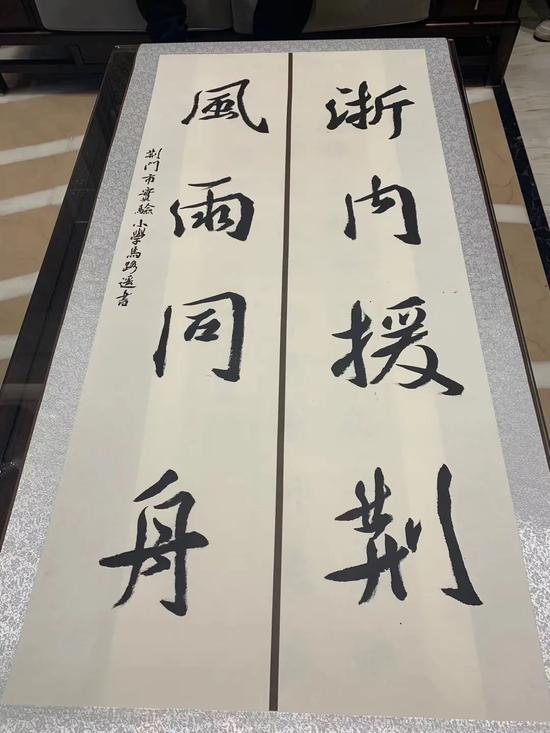 浙内援荆
風雨同舟
荆门市實驗小學馬路遥書